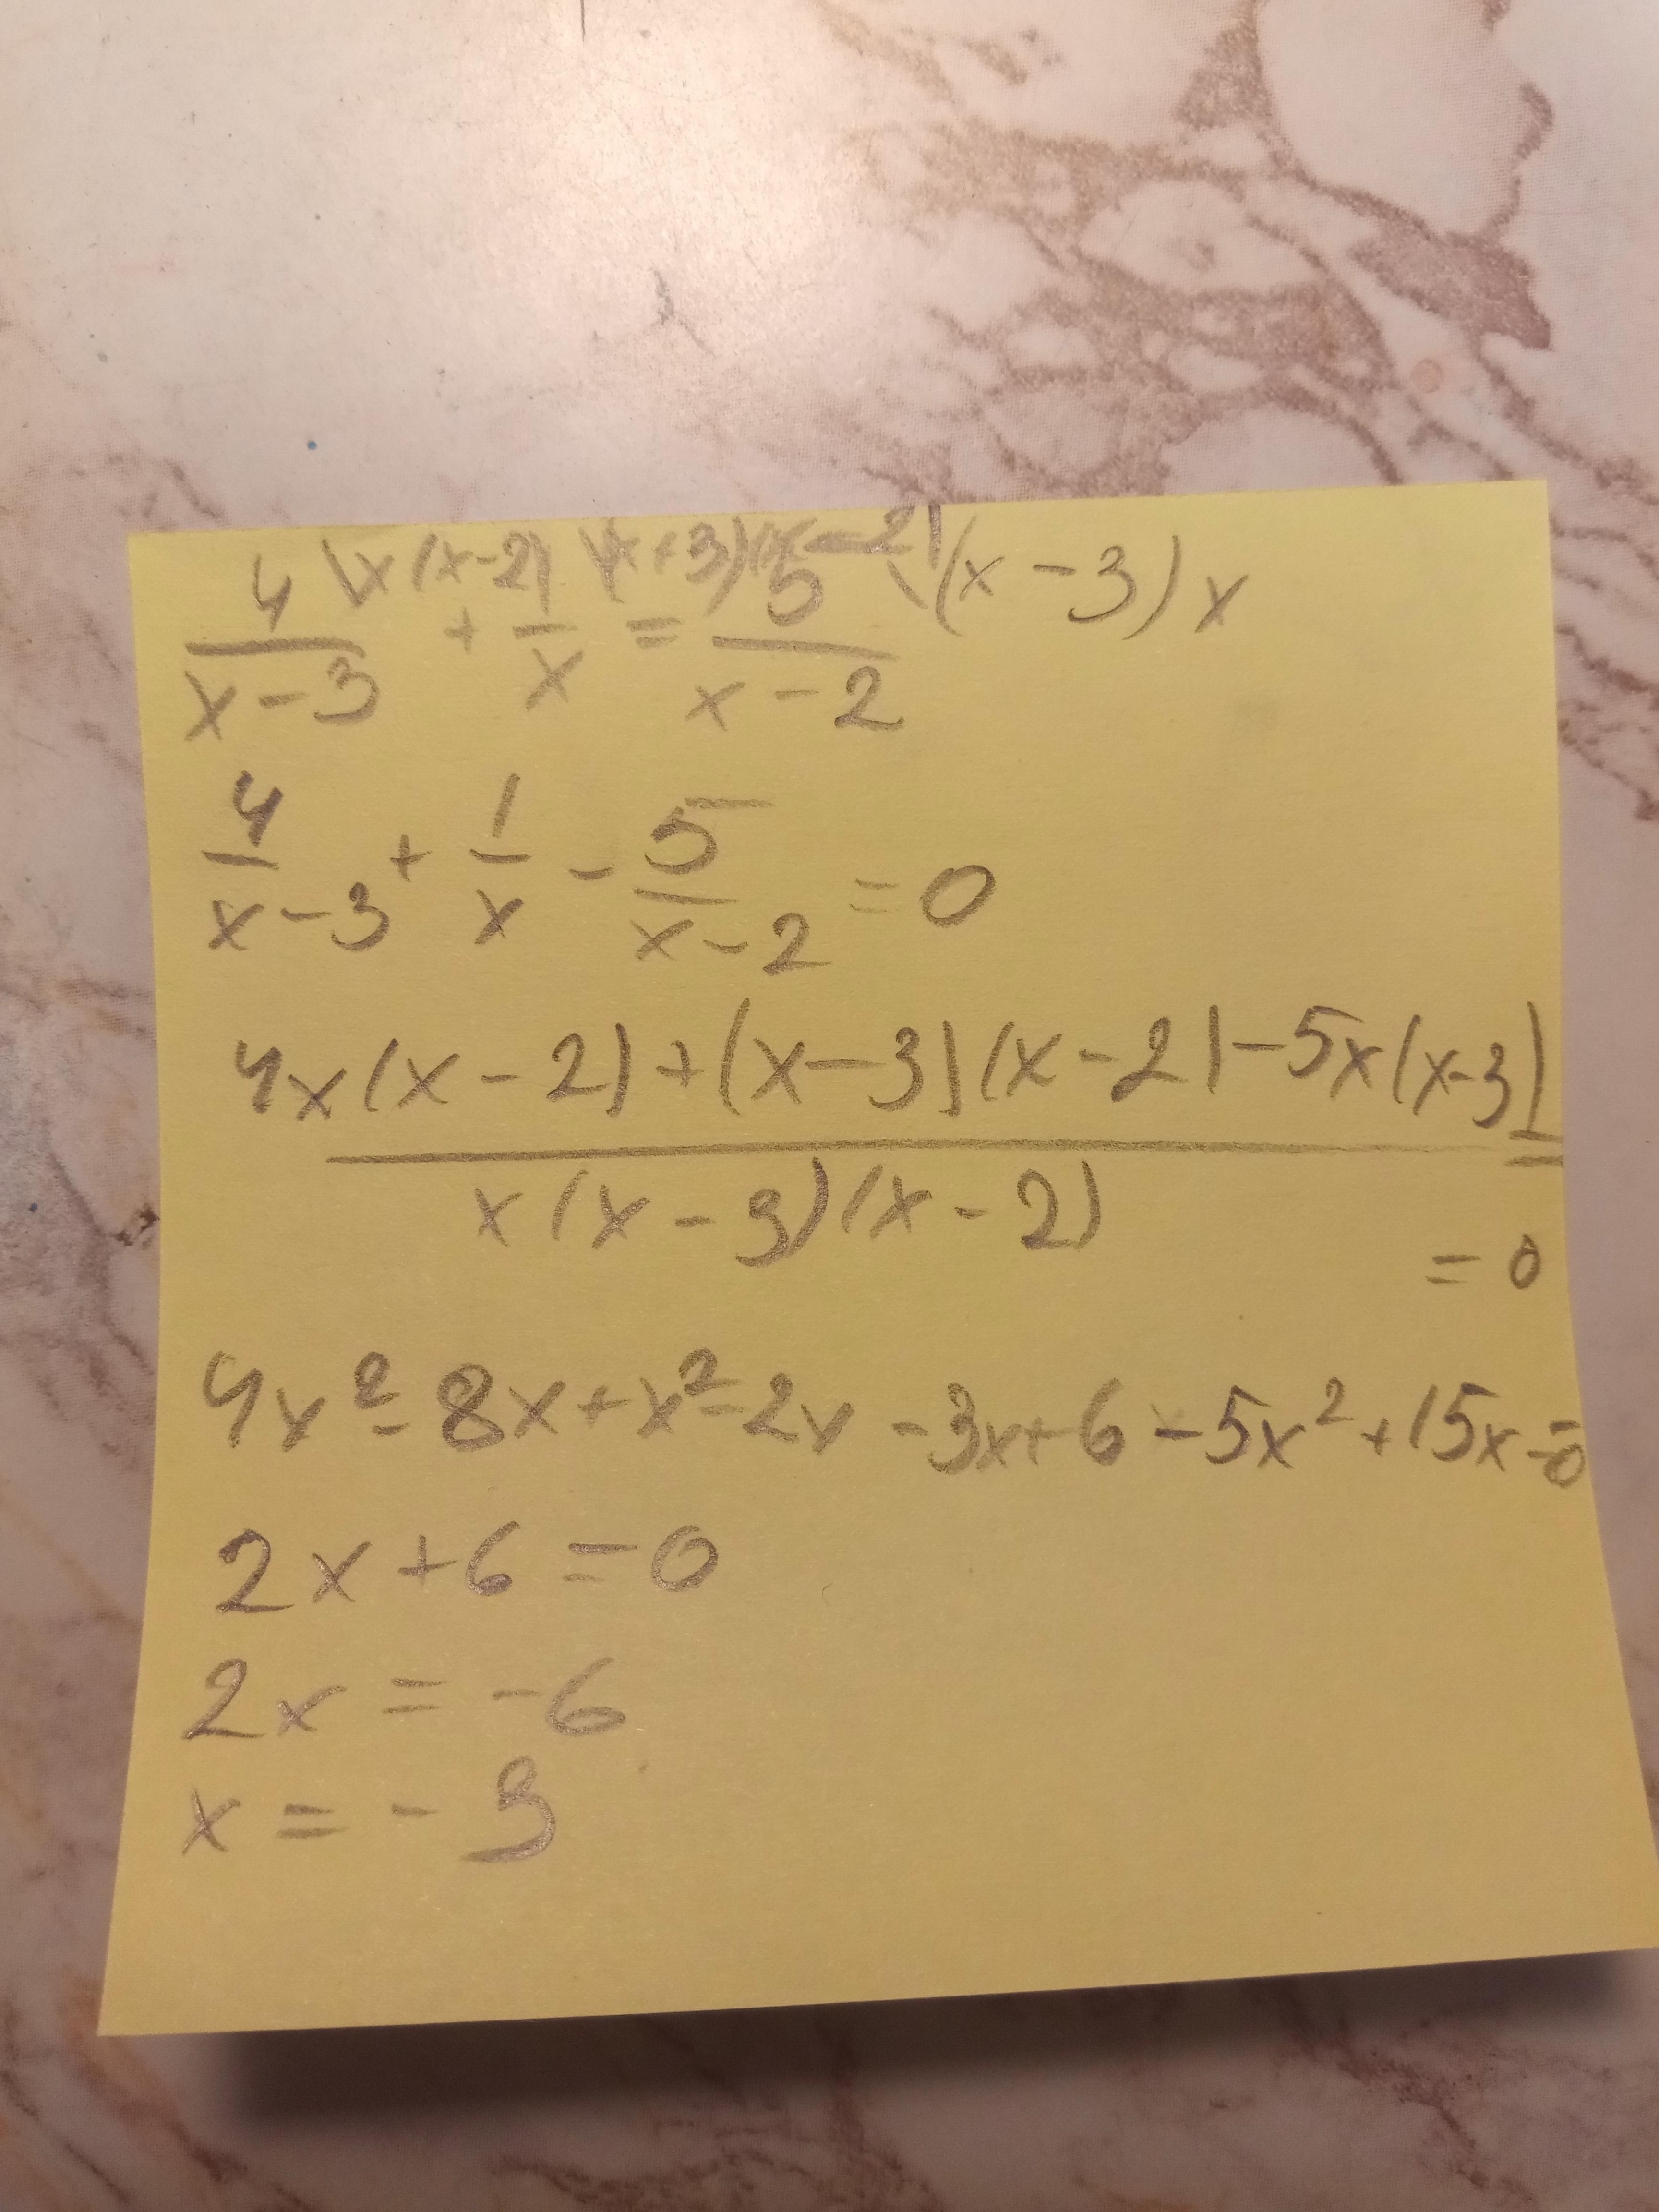 4 \x(x-2) \(x+3)(x-2) 5 \(x-3)x
x-3 + x = x-2
4/x-3 + 1/x - 5/x-2 = 0
4x(x-2)+(x-3)(x-2)-5x(x-3) =
x(x-3)(x-2)
= 0
4x²-8x+x²-2x-3x+6-5x²+15x=0
2x+6=0
2x=-6
x=-3